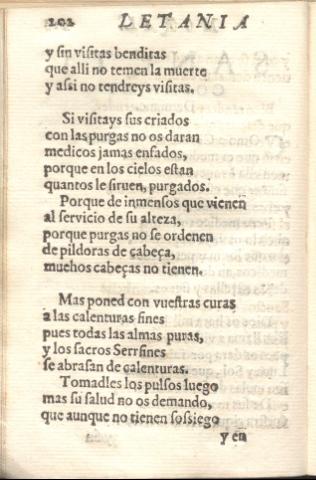 202 LETANIA
y sin visitas benditas
que alli no temen la muerte
y assi no tendreys visitas.
Si visitays sus criados
con las purgas no os daran
medicos jamas enfados,
porque en los cielos estan
quantos le siruen, purgados.
Porque de inmensos que vienen
al servicio de su alteza,
porque purgas no se ordenen
de pildoras de cabeça,
muchos cabeças no tienen.
Mas poned con vuestras curas
a las calenturas fines
pues todas las almas puras,
y los sacros Serrfines
se abrasan de calenturas.
Tomadles los pulsos luego
mas su salud no os demando,
que aunque no tienen sossiego
y en